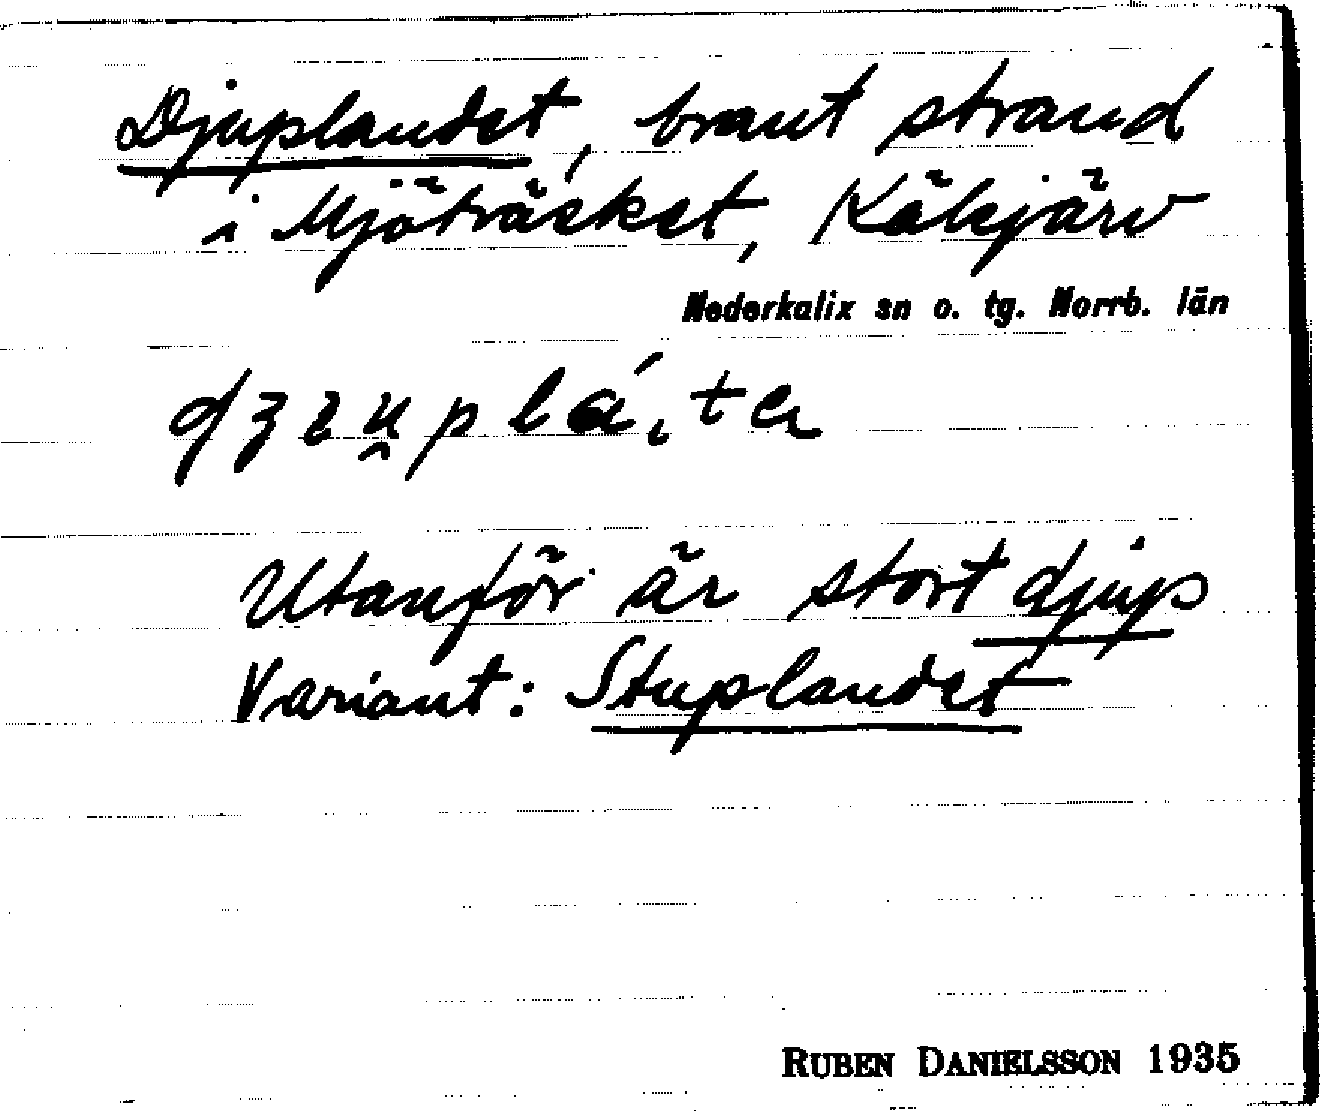 Djuplandet, brant strand
i Mjöträsket, Kälvjärv
Nederkalix sn o. tg. Norrb. län
Utanför är stort djup
Variant: Stuplandet
RUBEN DANIELSSON 1935